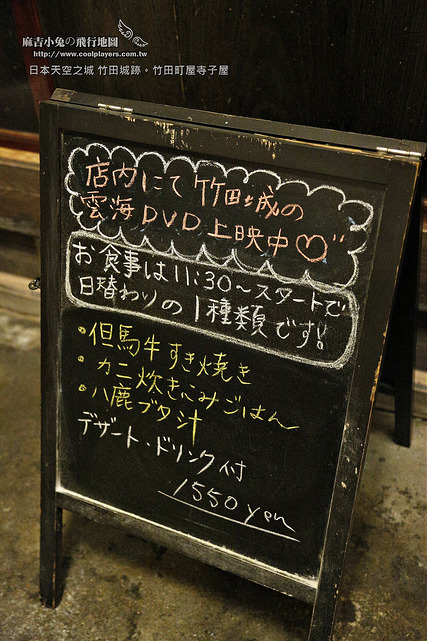 麻吉小兔の飛行地圖
http://www.coolplayers.com.tw
日本天空之城 竹田城跡。竹田町屋寺子屋
店内にて竹田城の
雲海DVD上映中♡
お食事は11:30〜スタートで
日替わりの1種類です!
・但馬牛すき焼き
・カニ炊きこみごはん
・八鹿ブタ汁
デザート・ドリンク付
1550yen